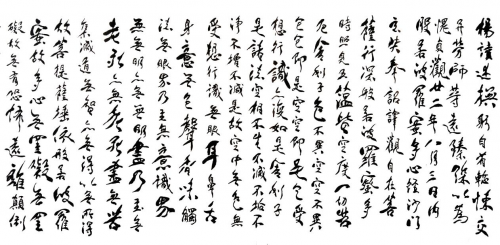 揚讚述撫躬自省慚悚交
并勞師等遠臻深以為
愧貞觀廿二年八月三日內
般若波羅蜜多心經沙門
玄奘奉詔譯觀自在菩
薩行深般若波羅蜜多
時照見五蘊皆空度一切苦
厄舍利子色不異空空不異
色色即是空空即是色受
想行識亦復如是舍利子
是諸法空相不生不滅不垢不
淨不增不減是故空中無色無
受想行識無眼耳鼻舌
身意無色聲香味觸
法無眼界乃至無意識界
無無明亦無無明盡乃至無
老死亦無老死盡無苦
集滅道無智亦無得以無所得
故菩提薩埵依般若波羅
蜜故多心無罣礙無罣
礙故無有恐怖遠離顛倒